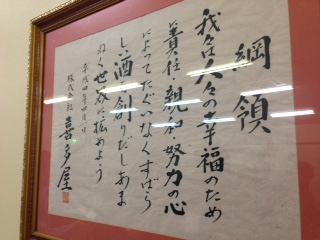 綱領
我々は人々の幸福のため
責任、親和、努力の心
によってたぐいなくすばら
しい酒を創りだしあま
ねく世界に拡めよう
株式会社 喜多屋